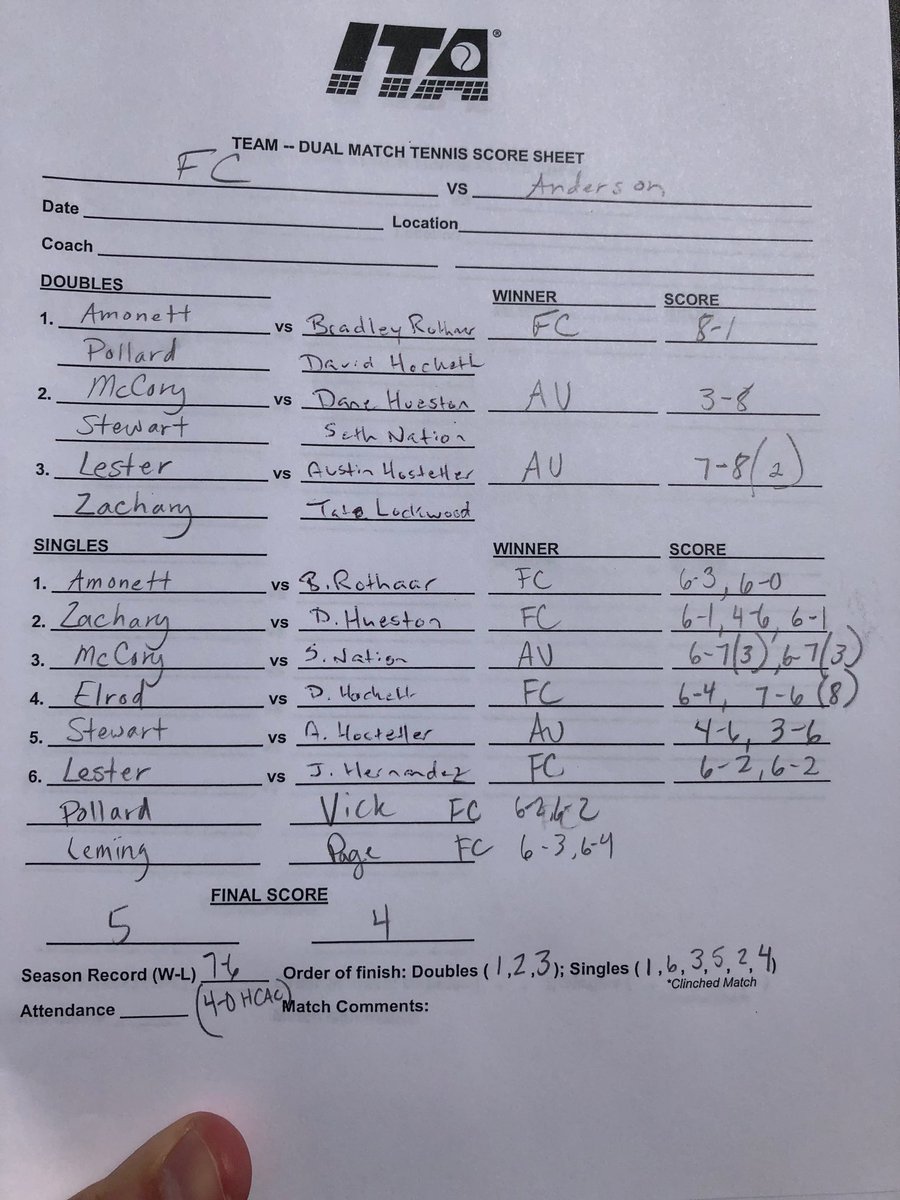 ITA®
TEAM -- DUAL MATCH TENNIS SCORE SHEET
FC VS Anderson
Date Location
Coach
DOUBLES WINNER SCORE
1. Amonett vs Bradley Rothaar FC 8-1
Pollard David Hockett
2. McCory vs Dane Hueston AU 3-8
Stewart Seth Nation
3. Lester vs Austin Hostetler AU 7-8(2)
Zachary Tate Lockwood
SINGLES WINNER SCORE
1. Amonett vs B. Rothaar FC 6-3, 6-0
2. Zachary vs D. Hueston FC 6-1, 4-6, 6-1
3. McCory vs S. Nation AU 6-7(3), 6-7(3)
4. Elrod vs D. Hockett FC 6-4, 7-6(8)
5. Stewart vs A. Hostetler AU 4-6, 3-6
6. Lester vs J. Hernandez FC 6-2, 6-2
Pollard Vick FC 6-2, 6-2
Leming Page FC 6-3, 6-4
FINAL SCORE
5 4
Season Record (W-L) 7-6 Order of finish: Doubles (1,2,3); Singles (1,6,3,5,2,4)
*Clinched Match
Attendance (4-0 HCAC) Match Comments: